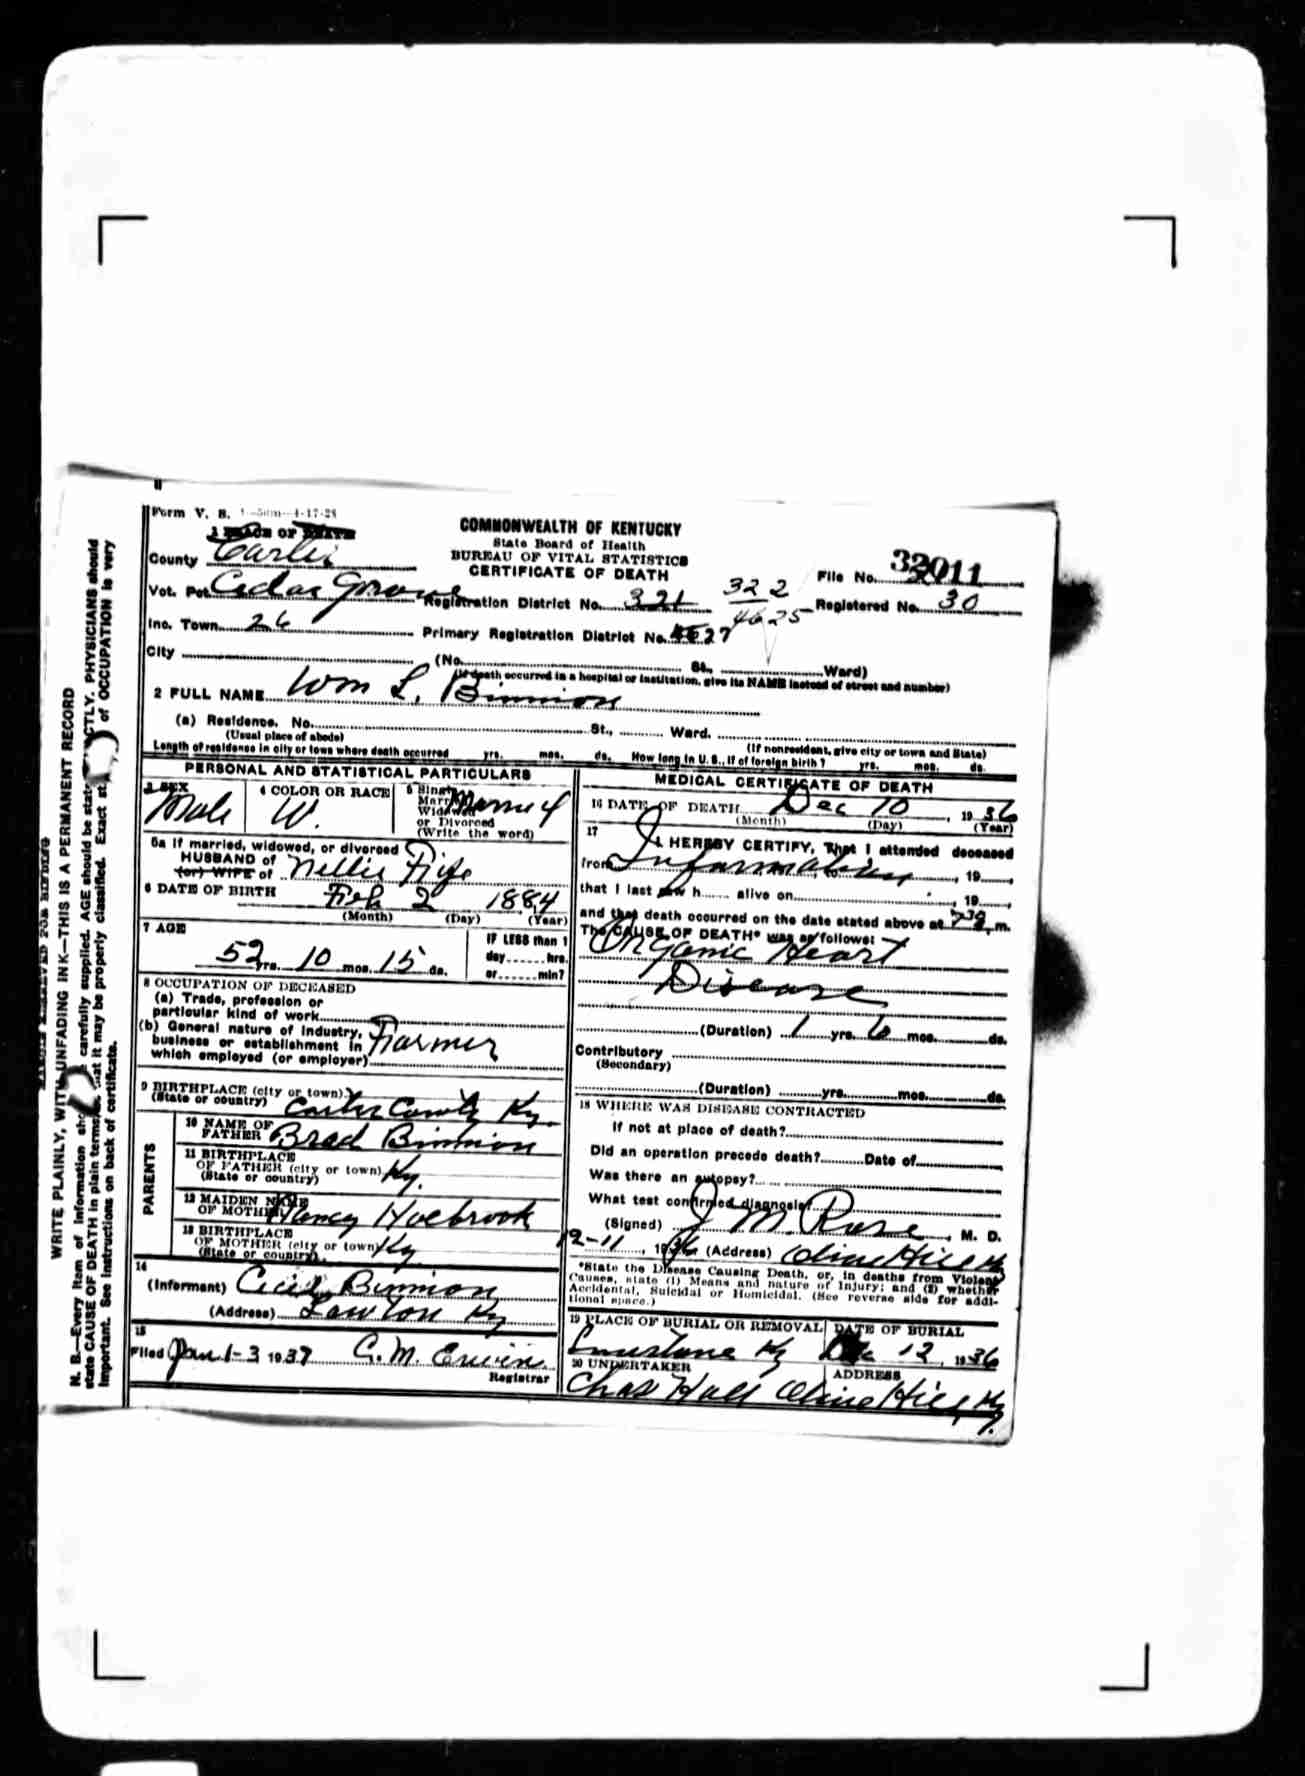 Form V. S. 1-50m-4-17-28
1 PLACE OF DEATH
COMMONWEALTH OF KENTUCKY
State Board of Health
BUREAU OF VITAL STATISTICS
CERTIFICATE OF DEATH
County Carter
File No. 32011
Vot. Pct. Cedar Grove Registration District No. 321 322 Registered No. 30
Inc. Town 26 Primary Registration District No. 4625
City (No. St., Ward)
(If death occurred in a hospital or institution, give its NAME instead of street and number)
2 FULL NAME Wm L. Binnion
(a) Residence. No. St., Ward.
(Usual place of abode) (If nonresident, give city or town and State)
Length of residence in city or town where death occurred yrs. mos. ds. How long in U. S., if of foreign birth? yrs. mos. ds.
PERSONAL AND STATISTICAL PARTICULARS
3 SEX 4 COLOR OR RACE 5 Single
Married
Widowed
or Divorced
(Write the word)
Male W. Married
5a If married, widowed, or divorced
HUSBAND of
(or) WIFE of Nellie Fife
6 DATE OF BIRTH Feb 2 1884
(Month) (Day) (Year)
7 AGE IF LESS than 1
day hrs.
52 yrs. 10 mos. 15 ds. or min?
8 OCCUPATION OF DECEASED
(a) Trade, profession or
particular kind of work
(b) General nature of Industry,
business or establishment in
which employed (or employer) Farmer
9 BIRTHPLACE (city or town)
(State or country) Carter County Ky
PARENTS
10 NAME OF
FATHER Brad Binnion
11 BIRTHPLACE
OF FATHER (city or town)
(State or country) Ky.
12 MAIDEN NAME
OF MOTHER Nancy Holbrook
13 BIRTHPLACE
OF MOTHER (city or town) Ky
(State or country)
14
(Informant) Cecil Binnion
(Address) Lawton Ky
15
Filed Jan 1-3 1937 G. M. Erwin
Registrar
MEDICAL CERTIFICATE OF DEATH
16 DATE OF DEATH Dec 10, 1936
(Month) (Day) (Year)
17
I HEREBY CERTIFY, That I attended deceased
from Information, to, 19
that I last saw h alive on, 19
and that death occurred on the date stated above at m.
The CAUSE OF DEATH* was as follows:
Organic Heart
Disease
(Duration) 1 yrs. 6 mos. ds.
Contributory
(Secondary)
(Duration) yrs. mos. ds.
18 WHERE WAS DISEASE CONTRACTED
If not at place of death?
Did an operation precede death? Date of
Was there an autopsy?
What test confirmed diagnosis?
(Signed) J M. Rose, M. D.
12-11, 1936 (Address) Olive Hill Ky
*State the Disease Causing Death, or, in deaths from Violent
Causes, state (1) Means and nature of Injury; and (2) whether
Accidental, Suicidal or Homicidal. (See reverse side for addi-
tional space.)
19 PLACE OF BURIAL OR REMOVAL DATE OF BURIAL
Limestone Ky Dec 12, 1936
20 UNDERTAKER ADDRESS
Chas Hall Olive Hill Ky.
WRITE PLAINLY, WITH UNFADING INK—THIS IS A PERMANENT RECORD
N. B.—Every item of information should be carefully supplied. AGE should be stated EXACTLY. PHYSICIANS should
state CAUSE OF DEATH in plain terms, that it may be properly classified. Exact of OCCUPATION is very
important. See instructions on back of certificate.